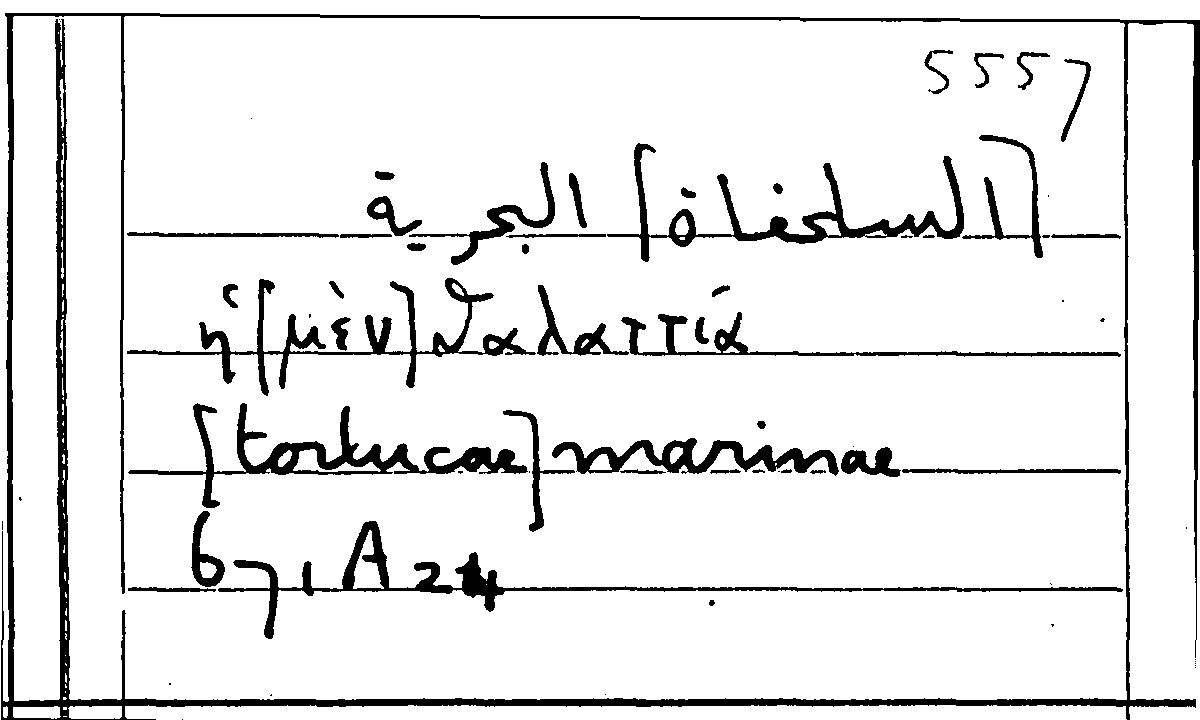 5557
[السلحفاة] البحرية
ἡ [μὲν] θαλαττία
[tortucae] marinae
671 A 24